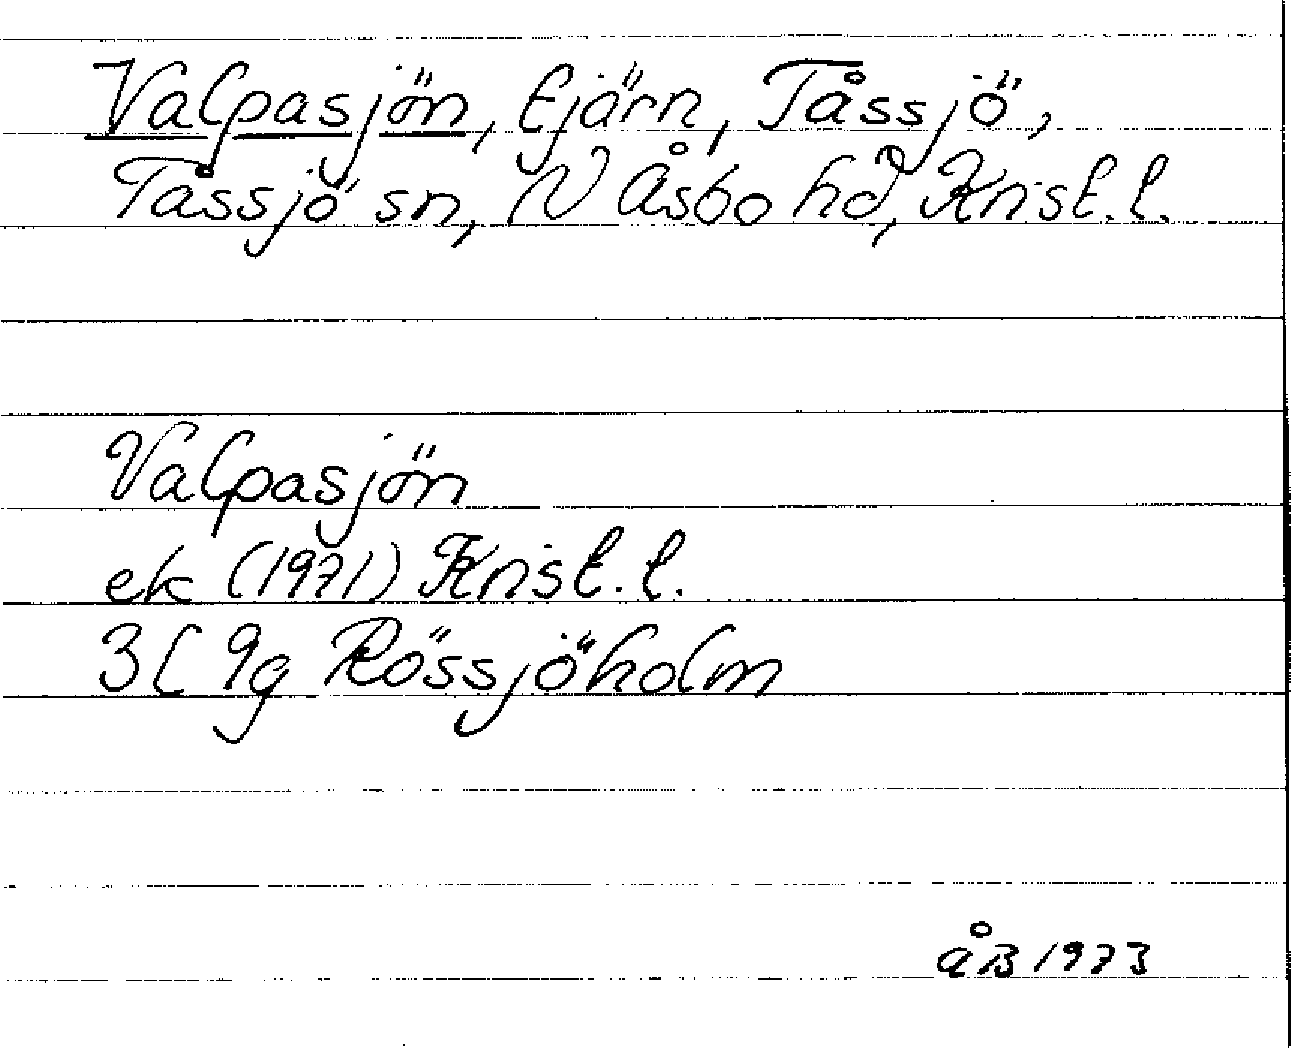 Valpasjön, tjärn, Tåssjö,
Tåssjö sn, N Åsbo hd, Krist. l.
Valpasjön
ek (1971) Krist. l.
3C 9g Rössjöholm
åB 1973